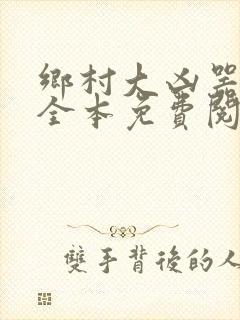 鄉村大凶器
全本免費閱
雙手背後的人